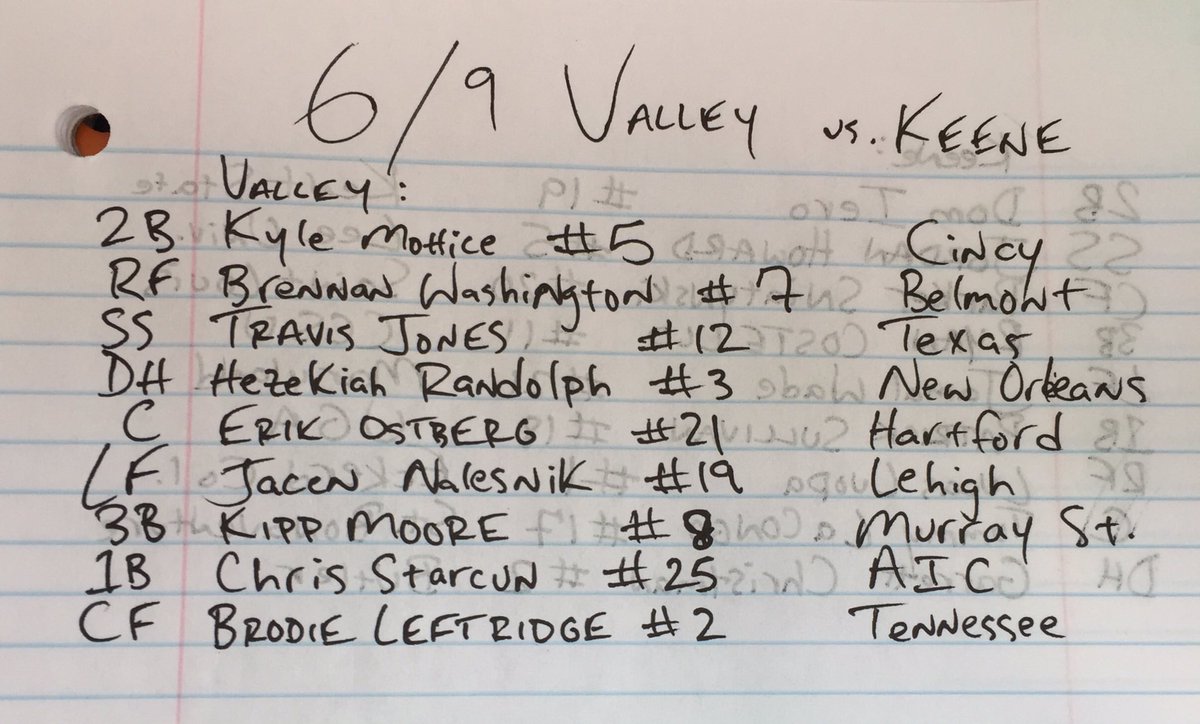 6/9 VALLEY vs. KEENE
VALLEY:
2B Kyle Mottice #5 Cincy
RF Brennan Washington #7 Belmont
SS TRAVIS JONES #12 Texas
DH Hezekiah Randolph #3 New Orleans
C ERIK OSTBERG #21 Hartford
LF Jacen Nalesnik #19 Lehigh
3B KIPP MOORE #8 Murray St.
1B Chris Starcun #25 AIC
CF BRODIE LEFTRIDGE #2 Tennessee